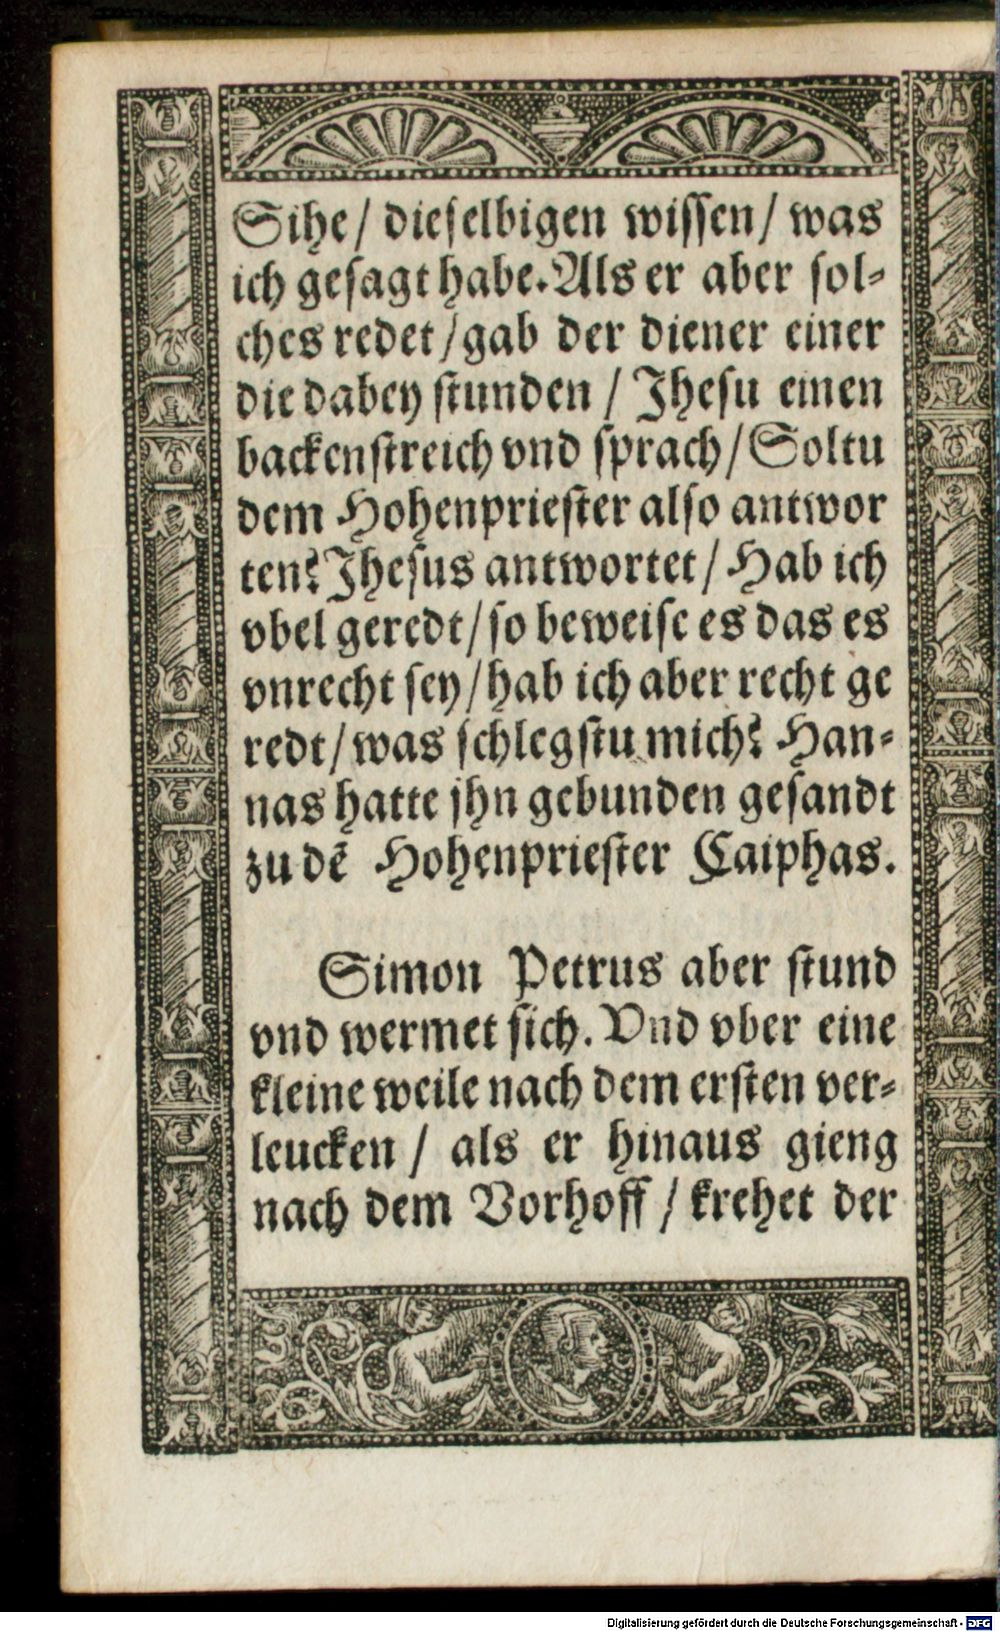 Sihe/ dieſelbigen wiſſen/ was
ich geſagt habe. Als er aber ſol⸗
ches redet/ gab der diener einer
die dabey ſtunden / Jheſu einen
backenſtreich vnd ſprach/ Soltu
dem Hohenprieſter alſo antwor
ten? Jheſus antwortet/ Hab ich
vbel geredt/ ſo beweiſe es das es
vnrecht ſey/ hab ich aber recht ge
redt/ was ſchlegſtu mich? Han⸗
nas hatte jhn gebunden geſandt
zu dẽ Hohenprieſter Caiphas.
Simon Petrus aber ſtund
vnd wermet ſich. Vnd vber eine
kleine weile nach dem erſten ver⸗
leucken / als er hinaus gieng
nach dem Vorhoff / krehet der
Digitalisierung gefördert durch die Deutsche Forschungsgemeinschaft - DFG